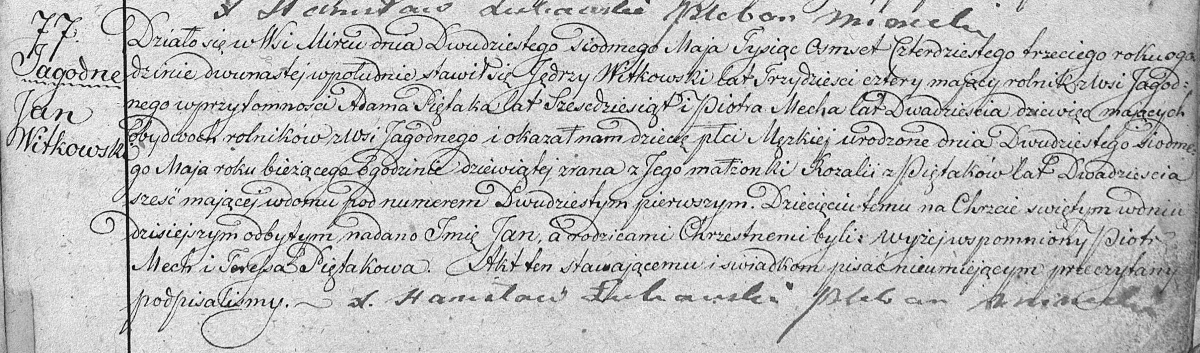 X Stanisław Łukawski Pleban Mirecki
77.
Jagodne
Jan
Witkowski
Działo się w Wsi Mircu dnia Dwudziestego siodmego Maja Tysiąc Osmset Czterdziestego trzeciego roku o go
dzinie dwunastej w południe stawił się Jędrzy Witkowski lat Trzydzieści cztery maiący rolnik z wsi Jagod:
nego w przytomności Adama Piętaka lat Szesćdziesiąt i Piotra Mecha lat Dwadzieścia dziewięć maiących
obydwoch rolników z Wsi Jagodnego i okazał nam dziecię płci Męzkiej urodzone dnia Dwudziestego siodme
go Maja roku bieżącego o godzinie dziewiątej zrana z Jego małżonki Rozalii z Piętaków lat Dwadzieścia
sześć mającej w domu pod numerem Dwudziestym pierwszym. Dziecięciu temu na Chrzcie świętym w dniu
dzisiejszym odbytym nadano Imię Jan, a rodzicami Chrzestnemi byli: wyżej wspomniony Piotr
Mech i Teresa Piętakowa. Akt ten stawającemu i swiadkom pisać nieumiejącym przeczytany
podpisalismy. X. Stanisław Łukawski Pleban Mirecki